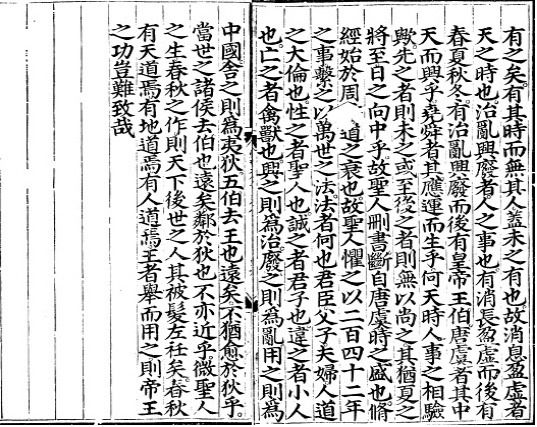 有之矣有其時而無其人蓋未之有也故消息盈虛者
天之時也治亂興廢者人之事也有消長盈虛而後有
春夏秋冬有治亂興廢而後有皇帝王伯唐虞者其中
天而興乎堯舜者其應運而生乎何天時人事之相驗
歟先之者則未之或至後之者則無以尚之其猶夏之
將至日之向中乎故聖人刪書斷自唐虞時之盛也脩
經始於周
道之衰也故聖人懼之以二百四十二年
之事繫之以萬世之法法者何也君臣父子夫婦人道
之大倫也性之者聖人也誠之者君子也違之者小人
也亡之者禽獸也興之則為治廢之則為亂用之則為
中國舍之則為夷狄五伯去王也遠矣不猶愈於狄乎
當世之諸侯去伯也遠矣鄰於狄也不亦近乎微聖人
之生春秋之作則天下後世之人其被髮左衽矣春秋
有天道焉有地道焉有人道焉王者舉而用之則帝王
之功豈難致哉